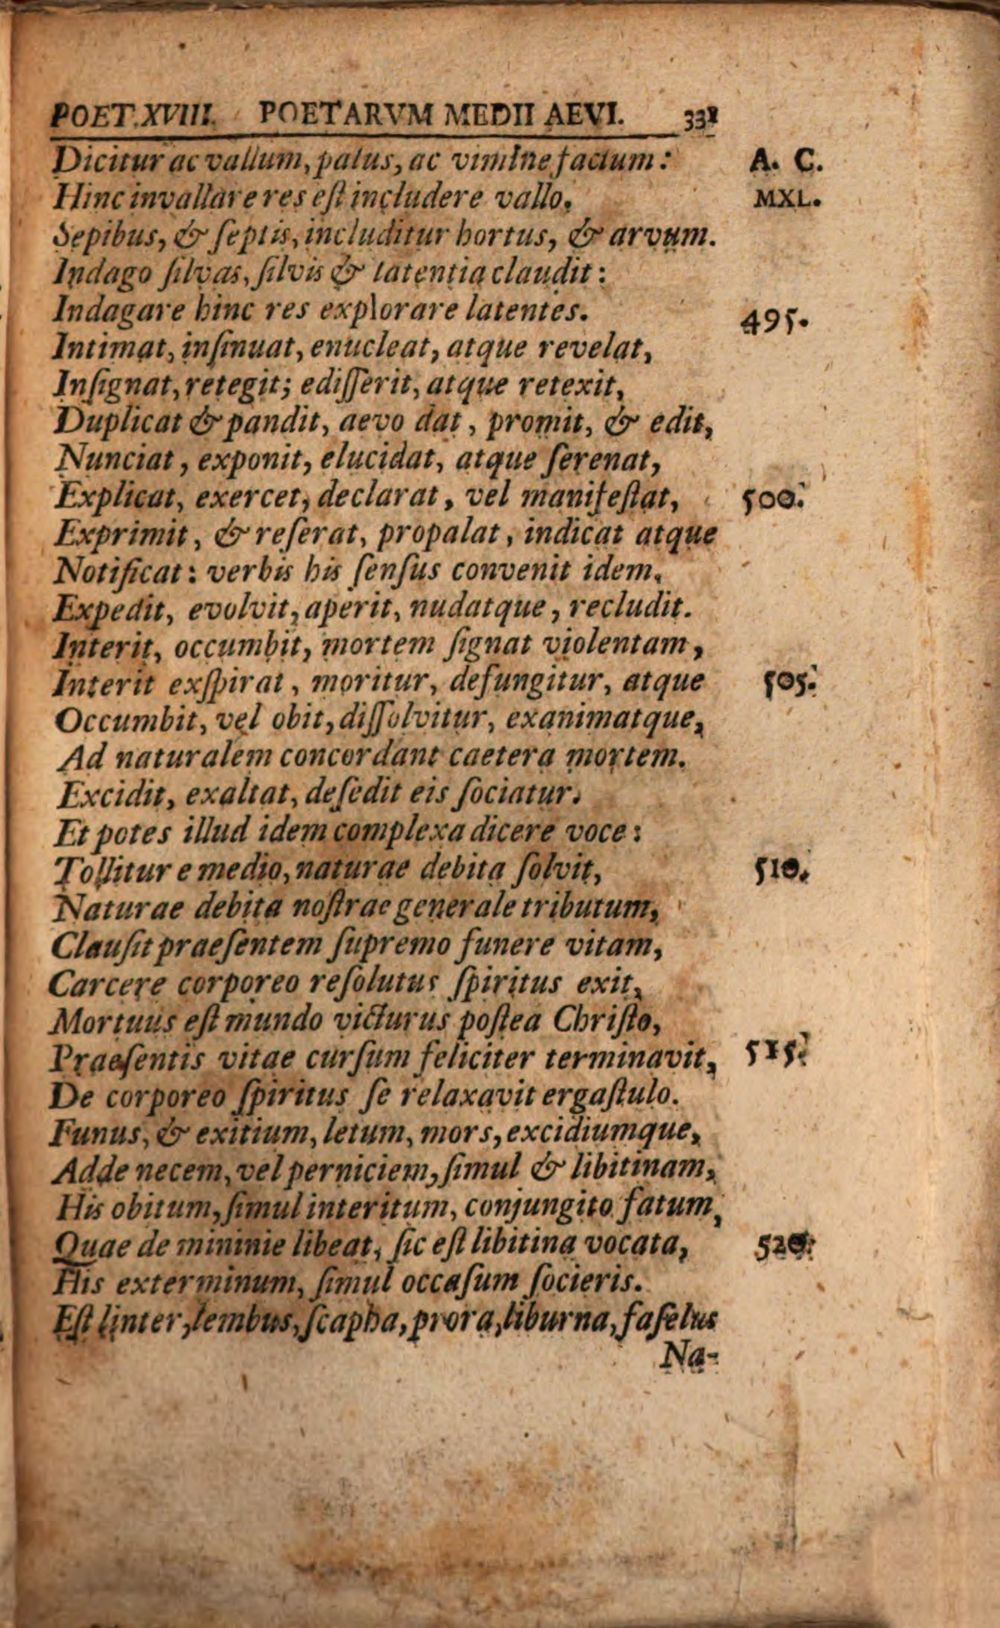 POET. XVIII. POETARVM MEDII AEVI. 331
Dicitur ac vallum, palus, ac vimine factum: A. C.
Hinc invallare res eſt includere vallo. MXL.
Sepibus, & ſeptis, includitur hortus, & arvum.
Indago ſilvas, ſilvis & latentia claudit:
Indagare hinc res explorare latentes. 495.
Intimat, inſinuat, enucleat, atque revelat,
Inſignat, retegit; ediſſerit, atque retexit,
Duplicat & pandit, aevo dat, promit, & edit,
Nunciat, exponit, elucidat, atque ſerenat,
Explicat, exercet, declarat, vel manifeſtat, 500.
Exprimit, & reſerat, propalat, indicat atque
Notificat: verbis his ſenſus convenit idem.
Expedit, evolvit, aperit, nudatque, recludit.
Interit, occumbit, mortem ſignat violentam,
Interit exſpirat, moritur, defungitur, atque 505.
Occumbit, vel obit, diſſolvitur, exanimatque,
Ad naturalem concordant caetera mortem.
Excidit, exaltat, deſedit eis ſociatur.
Et potes illud idem complexa dicere voce:
Tollitur e medio, naturae debita ſolvit, 510.
Naturae debita noſtrae generale tributum,
Clauſit praeſentem ſupremo funere vitam,
Carcere corporeo reſolutus ſpiritus exit,
Mortuus eſt mundo victurus poſtea Chriſto,
Praeſentis vitae curſum feliciter terminavit, 515.
De corporeo ſpiritus ſe relaxavit ergaſtulo.
Funus, & exitium, letum, mors, excidiumque,
Adde necem, vel perniciem, ſimul & libitinam,
His obitum, ſimul interitum, conjungito fatum,
Quae de minime libeat, ſic eſt libitina vocata, 520.
His exterminum, ſimul occaſum ſocieris.
Eſt linter, lembus, ſcapha, prora, liburna, faſelus
Na-